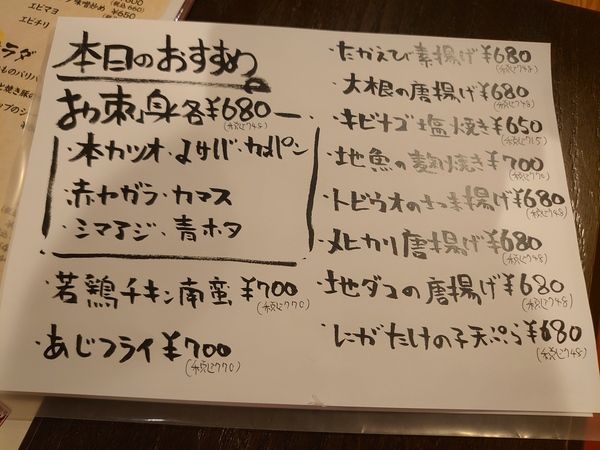 エビマヨ
エビチリ
¥650
本日のおすすめ
お刺身各¥680
(税込748)
・本カツオ・〆サバ・カメパン
・赤ヤガラ・カマス
・シマアジ・青ホタ
・若鶏チキン南蛮¥700
(税込770)
・あじフライ¥700
(税込770)
・たかえび素揚げ¥680
(税込748)
・大根の唐揚げ¥680
(税込748)
・キビナゴ塩焼き¥650
(税込715)
・地魚の麹焼き¥700
(税込770)
・トビウオのさつま揚げ¥680
(税込748)
・メヒカリ唐揚げ¥680
(税込748)
・地ダコの唐揚げ¥680
(税込748)
・にがたけの子天ぷら¥680
(税込748)